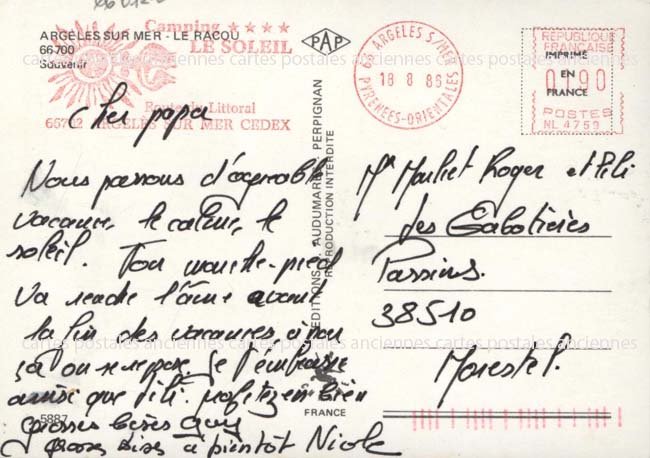 Camping ★★★★
LE SOLEIL
Route du Littoral
66702 ARGELÈS SUR MER CEDEX
ARGELÈS SUR MER - LE RACOU
66700
Souvenir
PAP
66 ARGELES S/MER
18 8 86
PYRENEES-ORIENTALES
REPUBLIQUE
FRANCAISE
IMPRIMÉ
EN
FRANCE
0190
POSTES
NL 4759
cartes postales anciennes cartes postales anciennes
Cher papa
Nous passons d'agréable
vacance, le calme, le
soleil. Ton marche-pied
va rendre l'âme avant
la fin des vacances à part
ça on se repose. Je t'embrasse
ainsi que Pili. profitez en bien
grosses bises Guy
grosses bises à bientôt Nicole
ÉDITIONS AUDUMARES PERPIGNAN
REPRODUCTION INTERDITE
5887
FRANCE
Mr Mouliet Roger et Pili
les Sabotières
Passins.
38510
Morestel.
cartes postales anciennes cartes postales anciennes